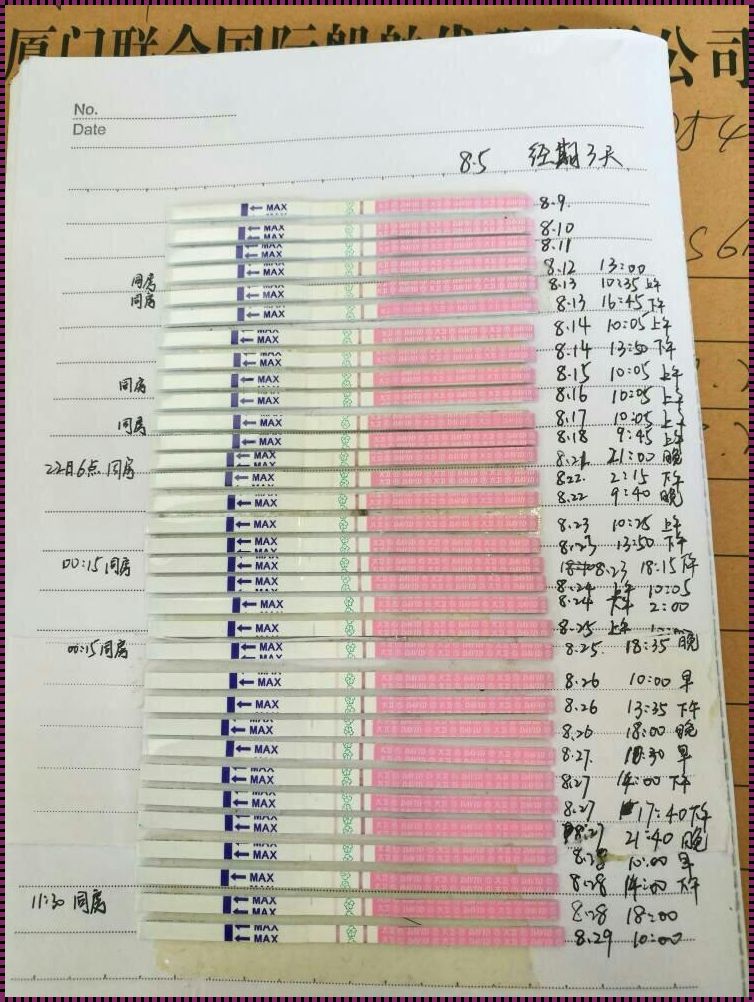 厦门联合国际船舶代理有限公司
No.
Date
8.5 经期3天
MAX 8.9
MAX 8.10
MAX 8.11
MAX 8.12 13:00
同房 MAX 8.13 10:35 上午
同房 MAX 8.13 16:45 下午
MAX 8.14 10:05 上午
MAX 8.14 13:50 下午
MAX 8.15 10:05 上午
同房 MAX 8.16 10:05 上午
MAX 8.17 10:05 上午
同房 MAX 8.18 9:45 上午
MAX 8.21 21:00 晚
22日6点同房 MAX 8.22. 2:15 下午
MAX 8.22 9:40 晚
MAX 8.23 10:25 上午
MAX 8.23 13:50 下午
00:15同房 MAX 8.23 18:15 下午
MAX 8.24 上午 10:05
MAX 8.24 下午 2:00
MAX 8.25 上午
00:15同房 MAX 8.25. 18:35 晚
MAX 8.26 10:00 早
MAX 8.26 13:35 下午
MAX 8.26 18:00 晚
MAX 8.27. 早
MAX 8.27 14:00 下午
MAX 8.27 17:40 下午
MAX 8.27 21:40 晚
MAX 8.28 10:00 早
MAX 8.28 14:00 下午
11:30 同房 MAX 8.28 18:00
MAX 8.29 10:00